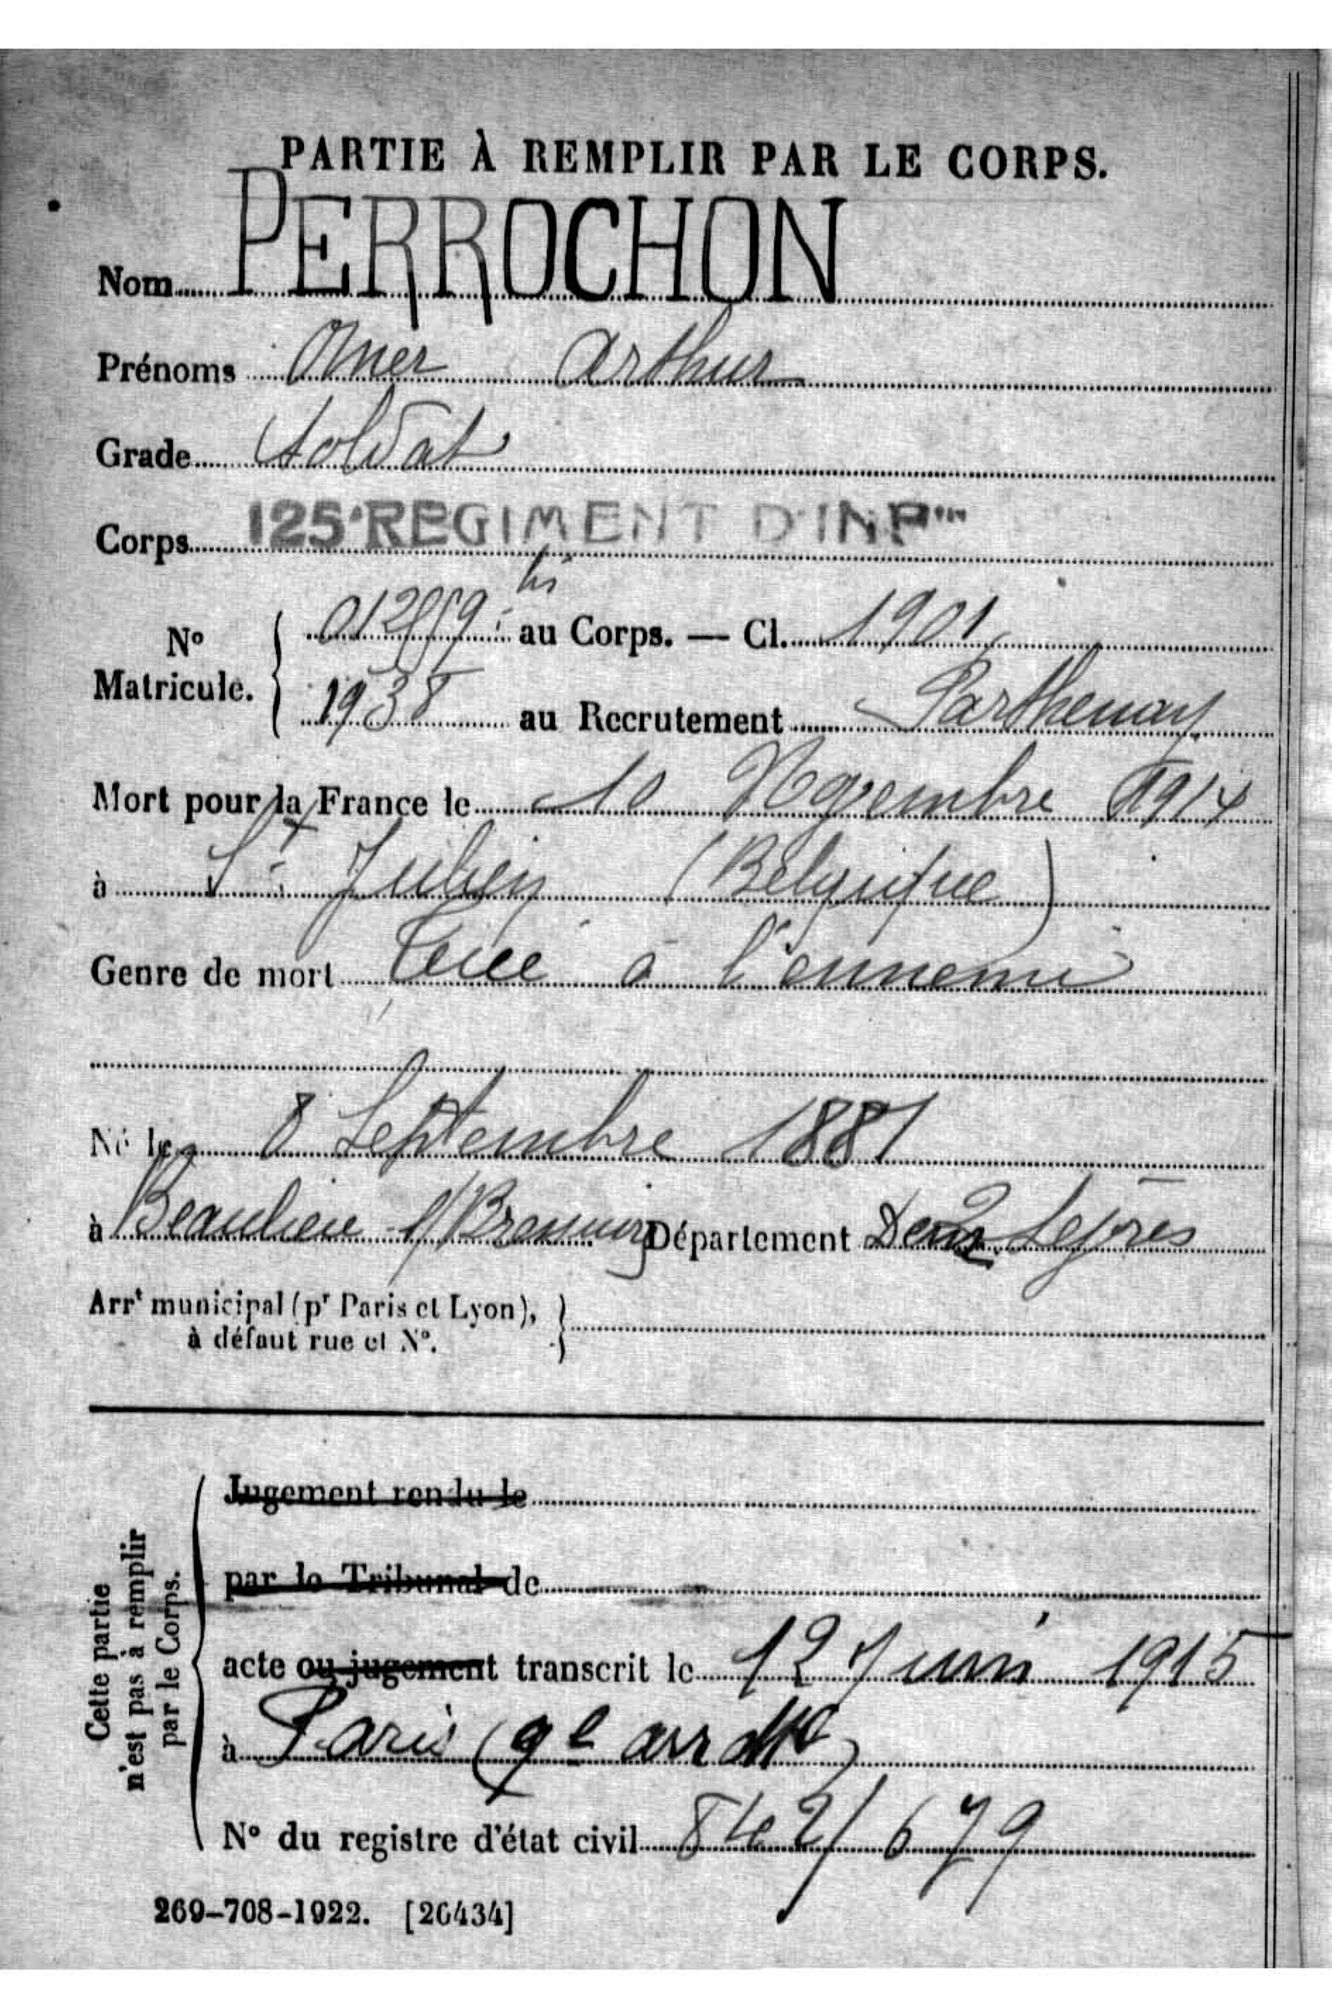 PARTIE À REMPLIR PAR LE CORPS.
Nom PERROCHON
Prénoms Omer Arthur
Grade Soldat
Corps 125e REGIMENT D'INFie
bis
N° Matricule. { 012559 au Corps. — Cl. 1901
1938 au Recrutement Parthenay
Mort pour la France le 10 Novembre 1914
à St Julien (Belgique)
Genre de mort Tué à l'ennemi
Né le 8 Septembre 1881
à Beaulieu s/Bressuire Département Deux Sèvres
Arrt municipal (pr Paris et Lyon),
à défaut rue et N°.
Cette partie
n'est pas à remplir
par le Corps.
Jugement rendu le
par le Tribunal de
acte ou jugement transcrit le 12 Juin 1915
à Paris (9e arrdt)
N° du registre d'état civil 842/679
269-708-1922. [26434]